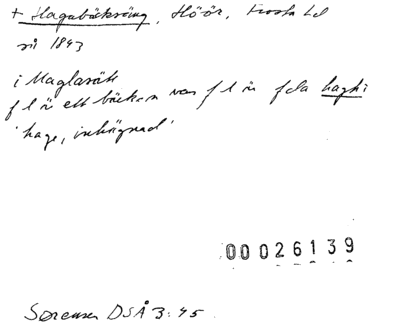 + Hagabäcksröing, Höör, Frosta hd
så 1843
i Maglasäte
f l är ett bäckn van f l är fda haghi
'hage, inhägnad'
00026139
Sørensen DSÅ 3:45